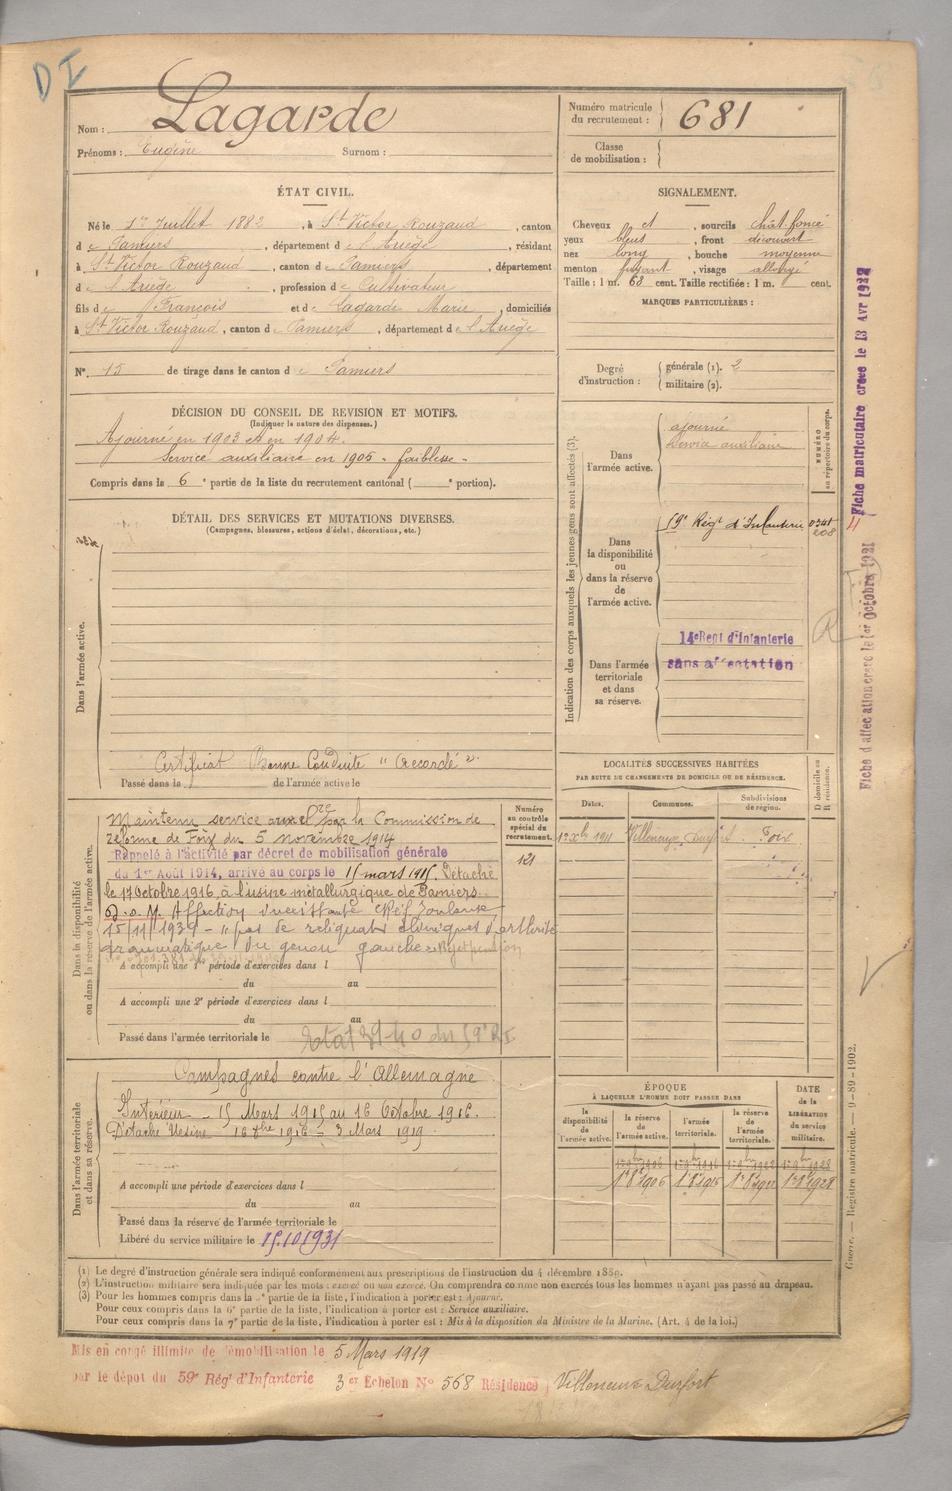 D I
Nom : Lagarde
Prénoms : Eugène Surnom :
Numéro matricule du recrutement : 681
Classe de mobilisation :
ÉTAT CIVIL.
Né le 1er Juillet 1882, à St Victor Rouzaud, canton
d e Pamiers, département d e l'Ariège, résidant
à St Victor Rouzaud, canton d e Pamiers, département
d e l'Ariège, profession d e Cultivateur
fils d e François et d e Lagarde Marie, domiciliés
à St Victor Rouzaud, canton d e Pamiers, département d e l'Ariège
N° 15 de tirage dans le canton d e Pamiers
SIGNALEMENT.
Cheveux et, sourcils chât. foncé
yeux bleus, front découvert
nez long, bouche moyenne
menton fuyant, visage allongé
Taille : 1 m. 68 cent. Taille rectifiée : 1 m. cent.
MARQUES PARTICULIÈRES :
Degré d'instruction : générale (1). 2
militaire (2).
DÉCISION DU CONSEIL DE REVISION ET MOTIFS.
(Indiquer la nature des dispenses.)
Ajourné en 1903 et en 1904.
Service auxiliaire en 1905 - faiblesse -
Compris dans la 6e partie de la liste du recrutement cantonal ( e portion).
DÉTAIL DES SERVICES ET MUTATIONS DIVERSES.
(Campagnes, blessures, actions d'éclat, décorations, etc.)
Dans l'armée active.
Certificat Bonne Conduite "Accordé".
Passé dans la de l'armée active le
Indication des corps auxquels les jeunes gens sont affectés (3).
NUMÉRO au répertoire du corps.
Dans l'armée active.
ajourné
Service auxiliaire
Dans la disponibilité ou dans la réserve de l'armée active.
59e Régt d'Infanterie
Dans l'armée territoriale et dans sa réserve.
14e Regt d'Infanterie
sans affectation
Fiche matriculaire créée le 13 Avr 1932
Fiche d'affectation créée le 1er Octobre 1931
R
LOCALITÉS SUCCESSIVES HABITÉES
PAR SUITE DE CHANGEMENTS DE DOMICILE OU DE RÉSIDENCE.
Dates. Communes. Subdivisions de région. D domicile ou R résidence.
1er Xbre 1911 Villeneuve Durfort Foix
Dans la disponibilité ou dans la réserve de l'armée active.
Numéro au contrôle spécial du recrutement.
121
Maintenu service armé par la Commission de
réforme de Foix du 5 novembre 1914
Rappelé à l'activité par décret de mobilisation générale
du 1er Août 1914, arrivé au corps le 15 mars 1915. Détaché
le 17 Octobre 1916, à l'usine métallurgique de Pamiers.
15/11/1939 - "pas de reliquats cliniques d'arthrite
du genou gauche
A accompli une 1re période d'exercices dans l
du au
A accompli une 2e période d'exercices dans l
du au
Passé dans l'armée territoriale le
Etat 39-40 du 59e RI
Dans l'armée territoriale et dans sa réserve.
Campagnes contre l'Allemagne
Intérieur - 15 Mars 1915 au 16 Octobre 1916.
Détaché Usine 3 Mars 1919
A accompli une période d'exercices dans l
du au
Passé dans la réserve de l'armée territoriale le
Libéré du service militaire le 15.10.1931
ÉPOQUE
À LAQUELLE L'HOMME DOIT PASSER DANS
la disponibilité de l'armée active. la réserve de l'armée active. l'armée territoriale. la réserve de l'armée territoriale.
DATE de la LIBÉRATION du service militaire.
(1) Le degré d'instruction générale sera indiqué conformément aux prescriptions de l'instruction du 4 décembre 1889.
(2) L'instruction militaire sera indiquée par les mots : exercé ou non exercé. On comprendra comme non exercés tous les hommes n'ayant pas passé au drapeau.
(3) Pour les hommes compris dans la 5e partie de la liste, l'indication à porter est : Ajourné.
Pour ceux compris dans la 6e partie de la liste, l'indication à porter est : Service auxiliaire.
Pour ceux compris dans la 7e partie de la liste, l'indication à porter est : Mis à la disposition du Ministre de la Marine. (Art. 4 de la loi.)
Guerre. — Registre matricule. — 9-89-1902.
Mis en congé illimité de démobilisation le 5 Mars 1919
par le dépôt du 59e Régt d'Infanterie 3er Echelon N° 568 Résidence Villeneuve Durfort